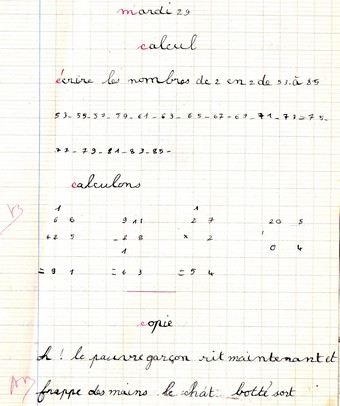 mardi 29
calcul
écrire les nombres de 2 en 2 de 53 à 85
53-55-57-59-61-63-65-67-69-71-73-75-
77-79-81-83-85-
calculons
1 1
B 6 6 9 11 2 7 20 5
+2 5 -2 8 × 2 0 4
1
=9 1 =6 3 =5 4
copie
h ! le pauvre garçon rit maintenant et
frappe des mains le chat botté sort